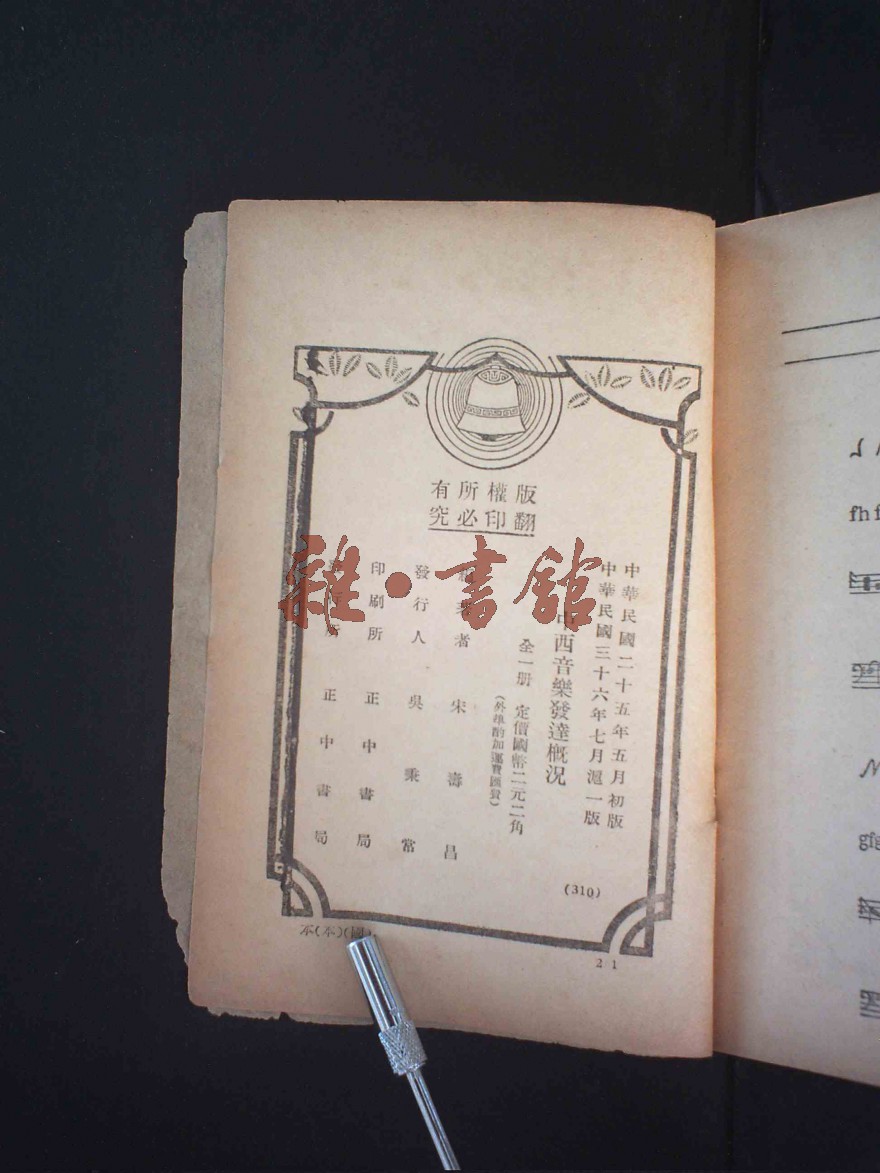 版權所有
翻印必究
中華民國二十五年五月初版
中華民國三十六年七月滬一版
中西音樂發達概況
全一册 定價國幣二元二角
(外埠酌加運費匯費)
者 宋壽昌
發行人 吳秉常
印刷所 正中書局
所 正中書局
(310)
雜·書館
本(本)(國)
21
fh f